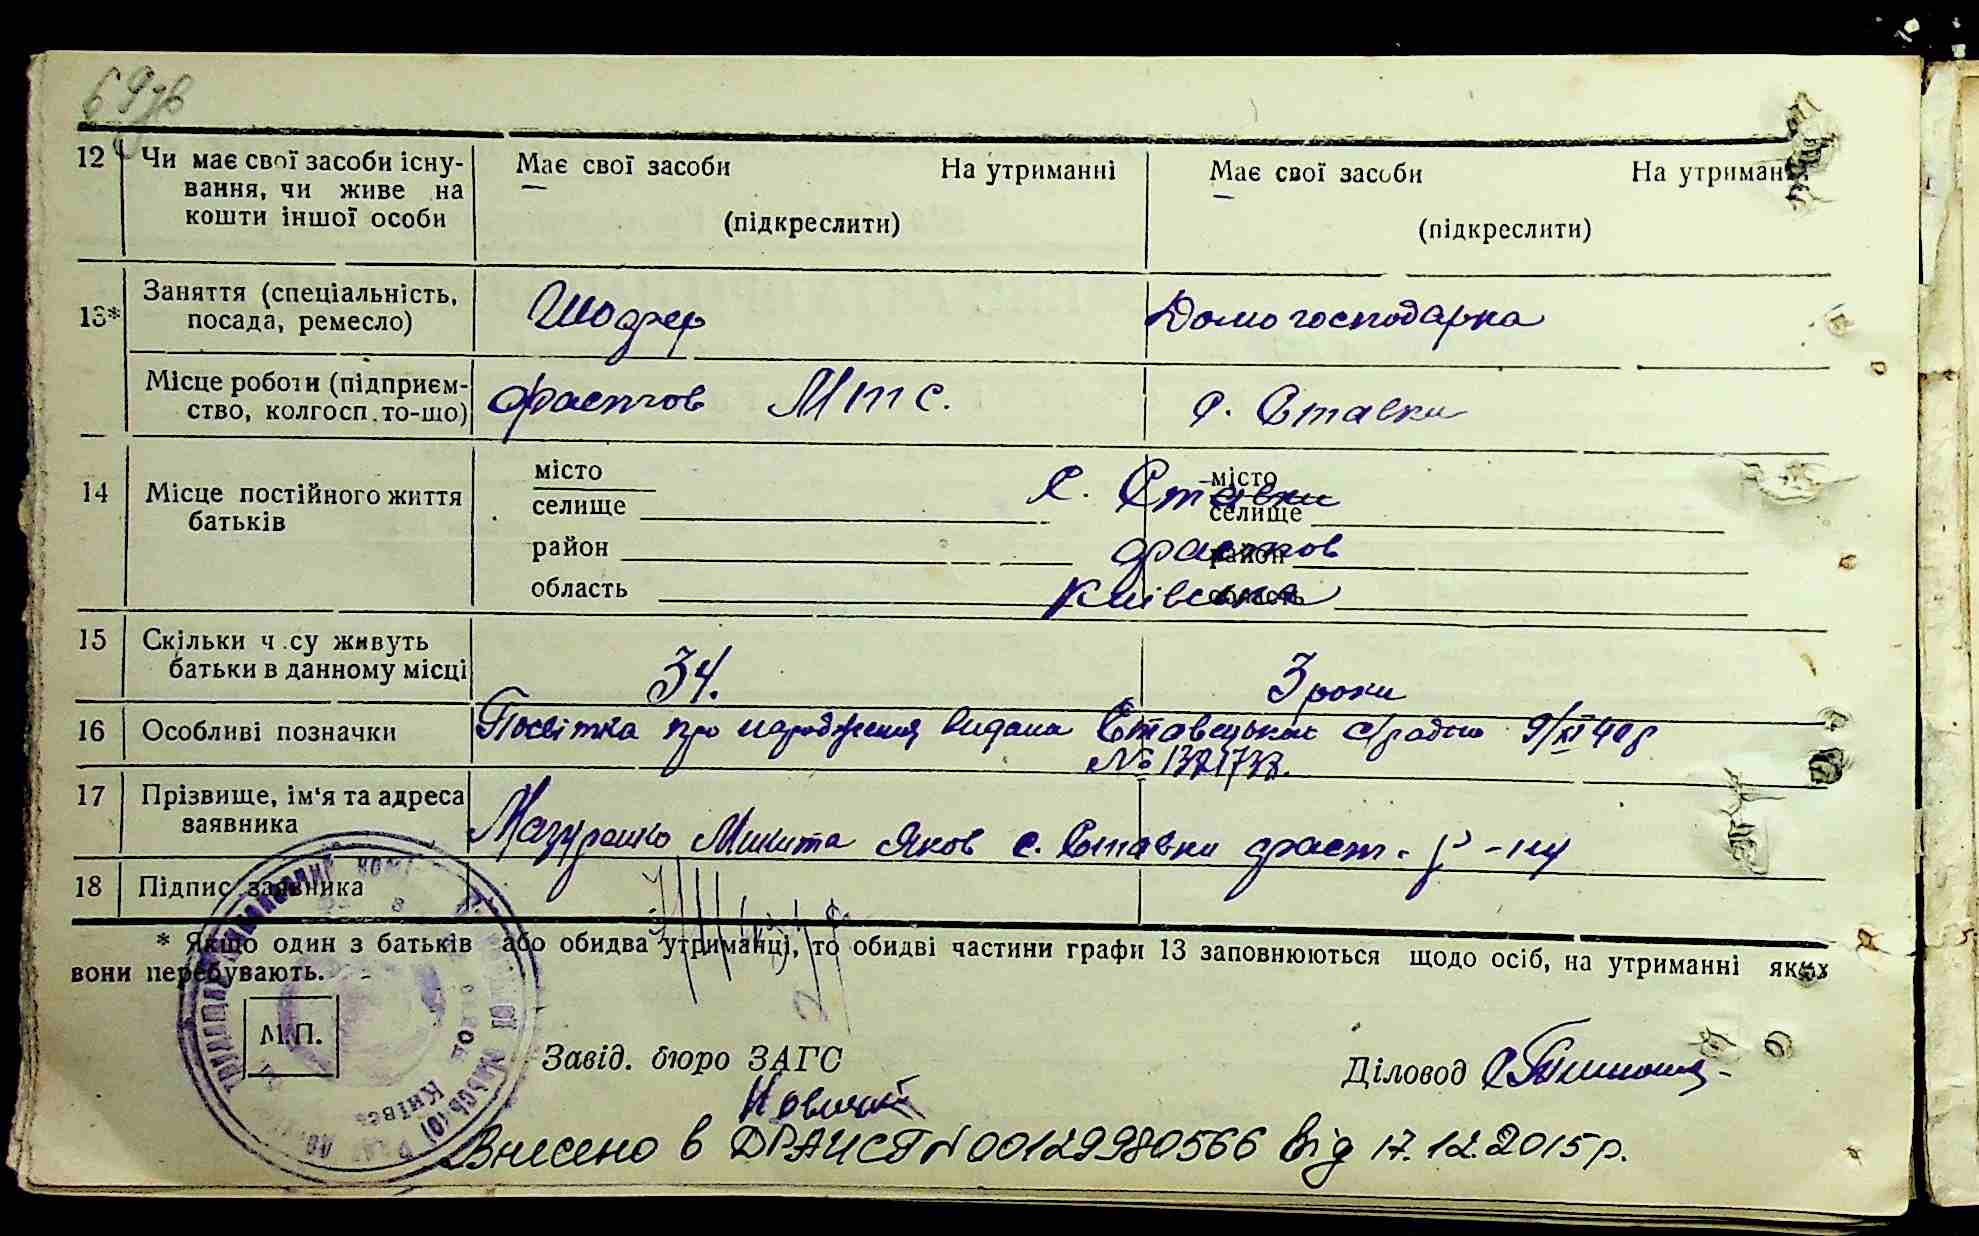 69зв
12 Чи має свої засоби існу- Має свої засоби На утриманні Має свої засоби На утриман
вання, чи живе на
кошти іншої особи (підкреслити) (підкреслити)
13* Заняття (спеціальність, Шофер Домогосподарка
посада, ремесло)
Місце роботи (підприєм- Фастов МТС. с. Ставки
ство, колгосп то-що)
14 Місце постійного життя місто с. Ставки місто
батьків селище селище
район Фастов район
область Київська область
15 Скільки ч су живуть
батьки в данному місці 34. 3 роки
16 Особливі позначки Посвітка про народження видана Ставецькою с/радою 9/XI 40 р
№ 1321733.
17 Прізвище, ім'я та адреса
заявника Микита Яков с. Ставки Фаст. р-ну
18 Підпис заявника
* Якщо один з батьків або обидва утриманці, то обидві частини графи 13 заповнюються щодо осіб, на утриманні яких
вони перебувають.
М.П.
Завід. бюро ЗАГС Діловод
Внесено в ДРАЦСГ N 00129980566 від 17.12.2015р.